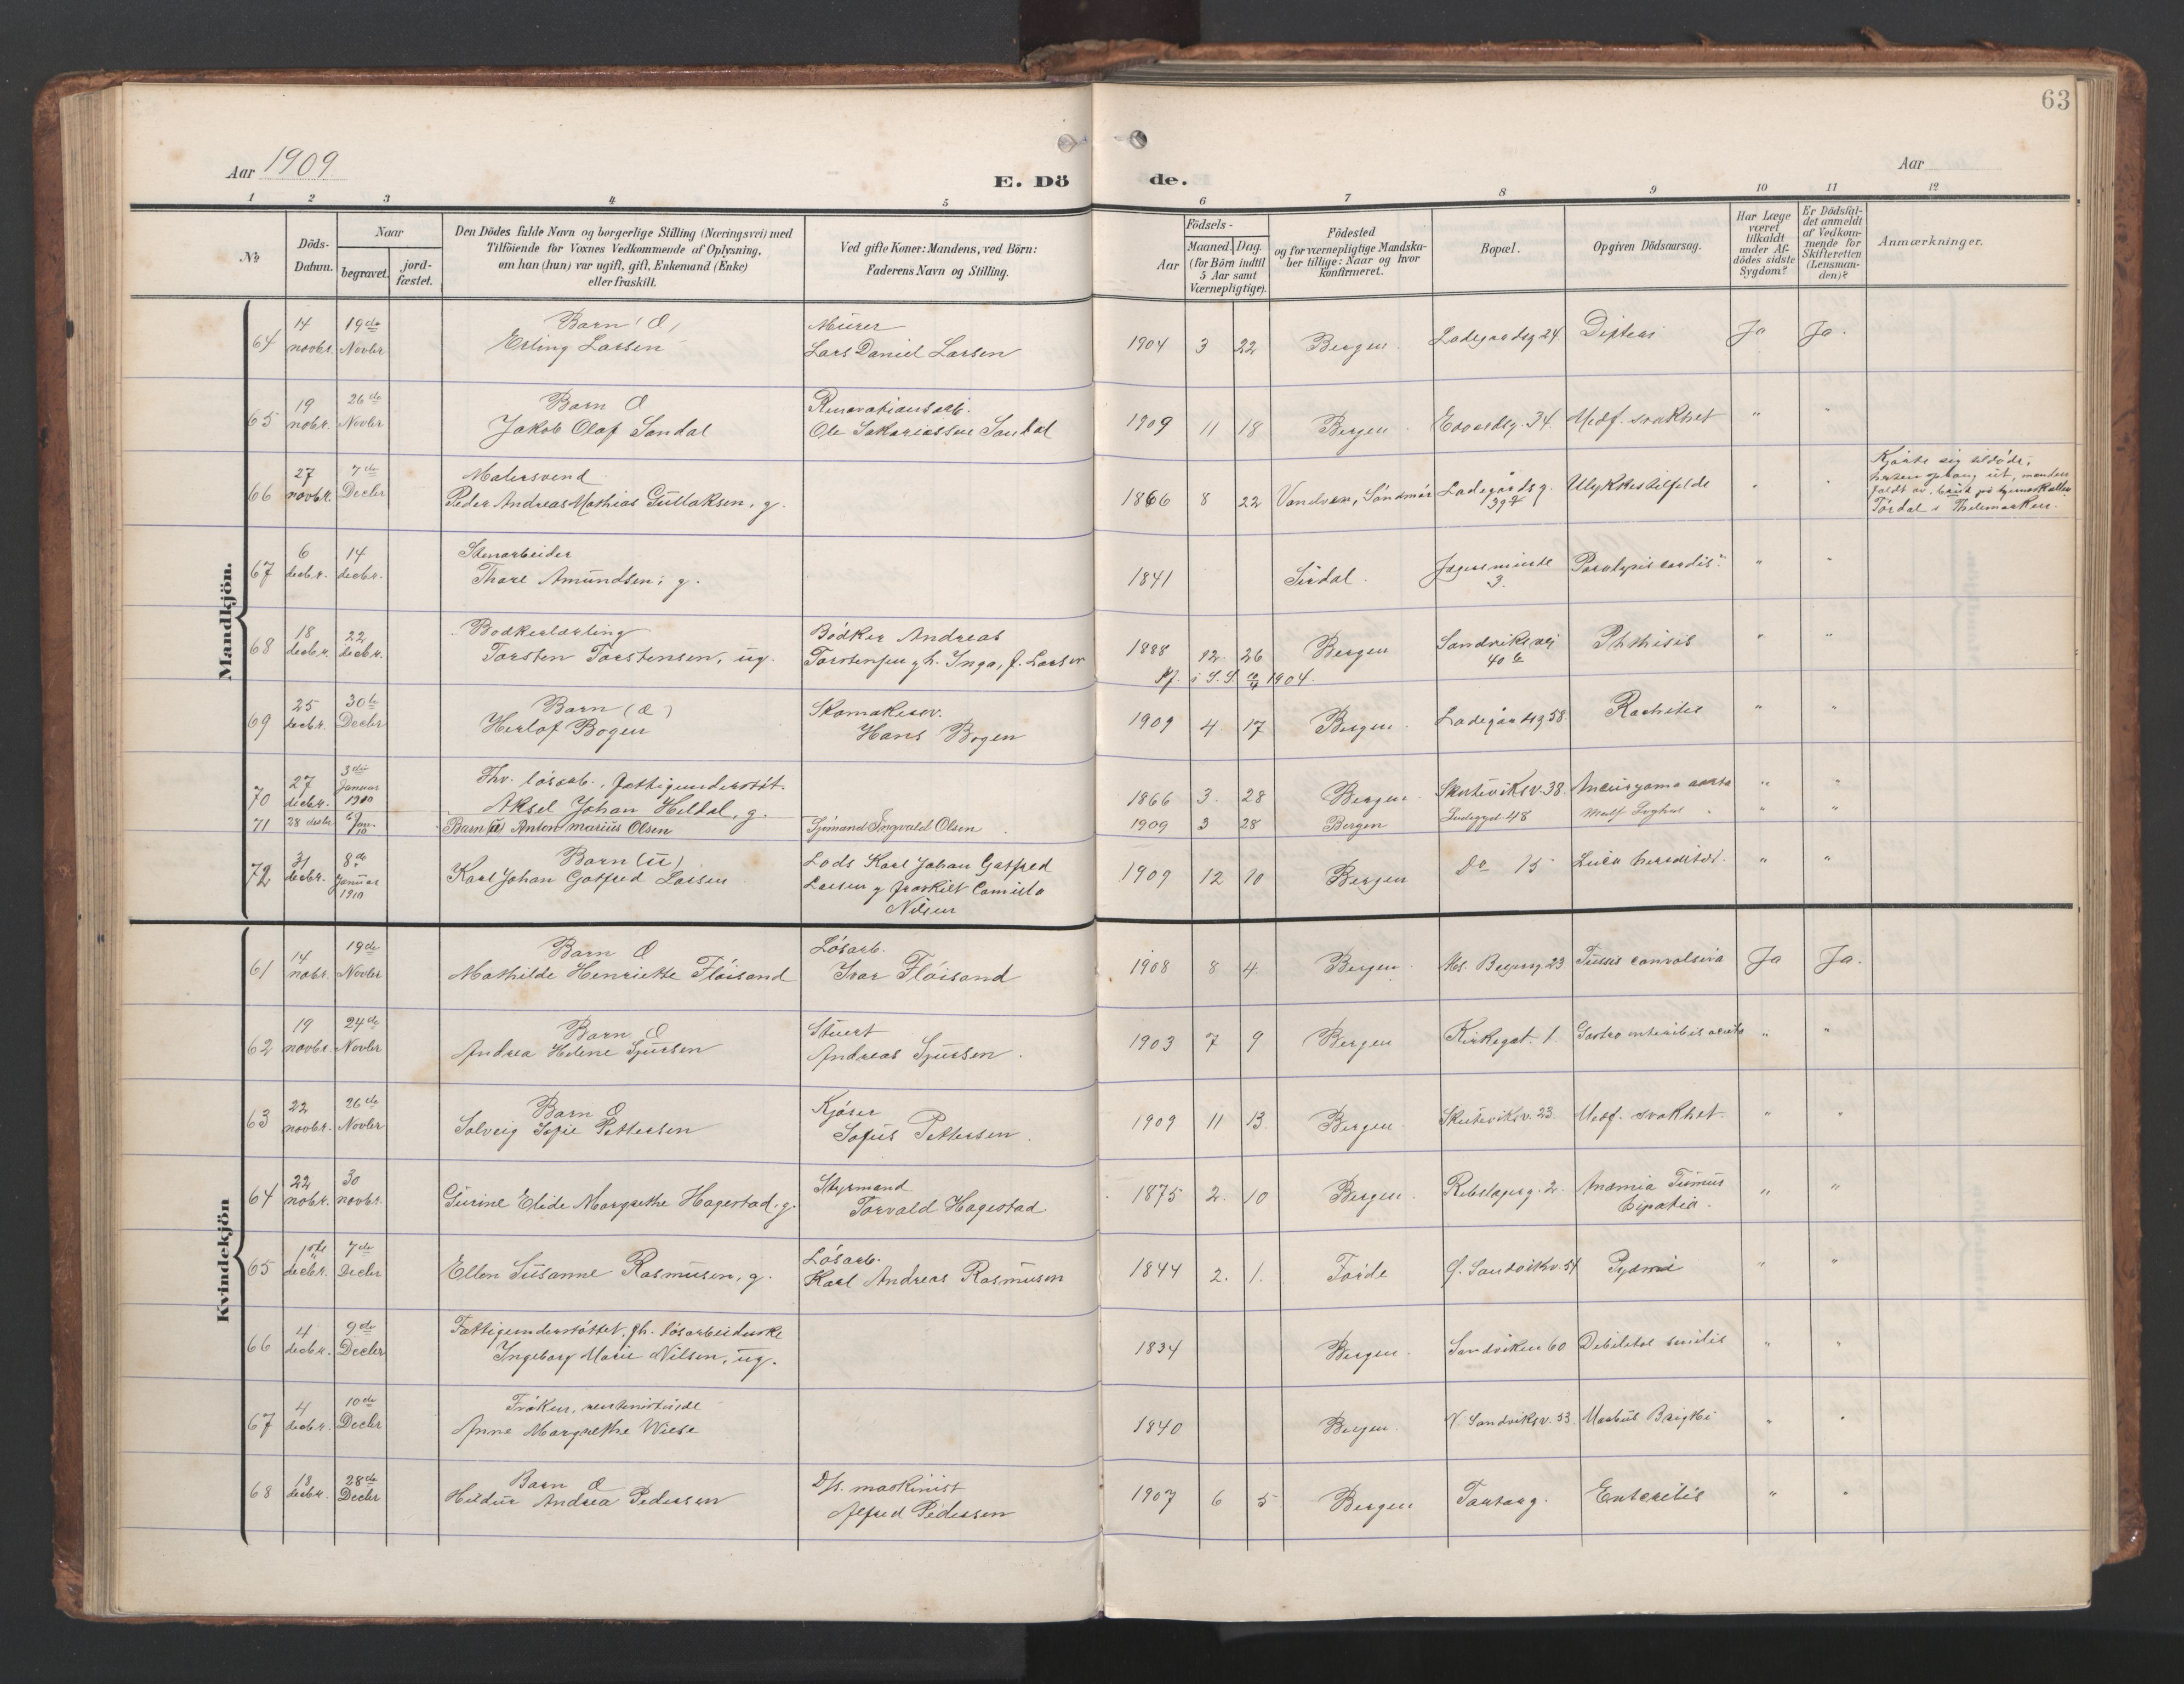 63
Aar 1909
E. Dö de.
Aar
1 2 3 4 5 6 7 8 9 10 11 12
No
Döds-Datum.
Naar
begravet.
jord-fæstet.
Den Dödes fulde Navn og borgerlige Stilling (Næringsvei) med
Tilföiende for Voxnes Vedkommende af Oplysning,
om han (hun) var ugift, gift, Enkemand (Enke)
eller fraskilt.
Ved gifte Koner: Mandens, ved Börn:
Faderens Navn og Stilling.
Födsels-
Aar
Maaned. Dag.
(for Börn indtil
5 Aar samt
Værnepligtige).
Födested
og for værnepligtige Mandska-
ber tillige: Naar og hvor
konfirmeret.
Bopæl.
Opgiven Dödsaarsag.
Har Læge
været
tilkaldt
under Af-
dödes sidste
Sygdom?
Er Dödsfal-
det anmeldt
af Vedkom-
mende for
Skifteretten
(Lensman-
den)?
Anmærkninger.
Mandkjön.
64 14 novbr. 19de Novbr Barn Erling Larsen Murer Lars Daniel Larsen 1904 3 22 Bergen Ladegardsg 24 Difteri Ja Ja.
65 19 nobr. 26de Novbr Barn Jakob Olaf Sandal Renovationsarb. Ole Sakariassen Sandal 1909 11 18 Bergen Edvardsg. 34 Medf. svakhet " "
66 27 novbr. 7de Decbr Malersvend Peder Andreas Mathias Gullaksen, g. 1866 8 22 Vandven, Söndmör Ladegårdsg. 39 Ulykkestilfelde " " Kjörte sig tildöde,
67 6 decbr. 14 decbr. Stenarbeider Thore Amundsen, g. 1841 Sirdal. Jægersminde 3. Paralysis cordis. " "
68 18 decbr. 22 decbr. Bödkerlærling Torsten Torstensen, ug. Bödker Andreas Torstensen gh. Inga, f. Larsen 1888 12. 26 Bergen Sandviksvei 40 b Phthisis " "
i S. S. 1904.
69 25 decbr. 30te Decbr Barn Herlof Bogen Skomakersv. Hans Bogen 1909 4. 17 Bergen Ladegårdsg 58. Rachitis " "
70 27 decbr. 3die Januar 1910 Fhv. lösarb., fattigunderstöt. Aksel Johan Heldal, g. 1866 3. 28 Bergen Skuteviksv. 38. Aneurysma aorta " "
71 28 decbr 6 Jan. 10 Barn (u) Anton Marius Olsen Sjömand Ingvald Olsen 1909 3 28 Bergen Ladeggd. 48 " "
72 31 decbr. 8de Januar 1910 Barn (u) Karl Johan Gotfred Larsen Lods Karl Johan Gotfred Larsen g fraskilt Camilla Nilsen 1909 12 10 Bergen Do 15 Lues heredität. " "
Kvindekjön
61 14 nobr. 19de Novbr Barn Mathilde Henriette Flöisand Lösarb. Ivar Flöisand 1908 8 4. Bergen 23 Tussis convulsiva Ja Ja.
62 19 novbr. 24de Novbr Barn Andrea Helene Sjursen Stuert Andreas Sjursen. 1903 7 9 Bergen Kirkegat. 1. Gastro enteritis acuta " "
63 22 novbr. 26de Novbr Barn Solveig Sofie Pettersen Kjöser Sofus Pettersen. 1909 11 13. Bergen Skuteviksv. 23. Medf. svakhet " "
64 22 nobr. 30 novbr. Gurine Elide Margrethe Hagestad. g. Styrmand Torvald Hagestad. 1875 2. 10 Bergen. Rebslagerg. 2. Anæmia Tumus " "
65 1ste decbr. 7de Decbr Ellen Susanne Rasmusen, g. Lösarb. Karl Andreas Rasmusen 1844 2. 1. Förde f. Sandvikv. 54 Pyämi " "
66 4 decbr. 9de Decbr Fattigunderstöttet, fh. lösarbeiderske Ingeborg Marie Nilsen, ug. 1834 Bergen. Sandviken 60 Debilitas senilis " "
67 4 decbr. 10de Decbr Fröken, rentenistinde Anne Margrethe Wiese 1840 Bergen. N. Sandviksv. 53. Morbus Brigthi " "
68 18 decbr. 28de Decbr Barn Hildur Andrea Pedersen D/s. maskinist Alfred Pedersen 1907 6 5 Bergen Tartarg. Enteritis " "